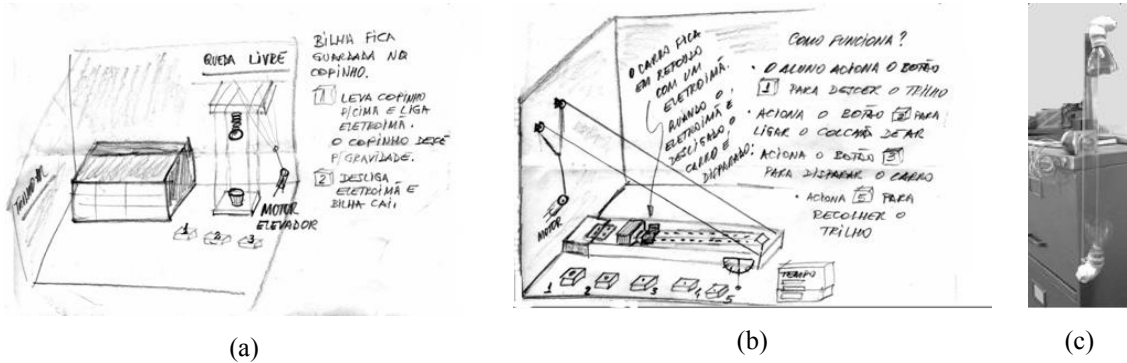 QUEDA LIVRE
BILHA FICA
GUARDADA NO
COPINHO.
1 LEVA COPINHO
P/CIMA E LIGA
ELETROIMÃ.
O COPINHO DESCE
P/GRAVIDADE.
2 DESLIGA
ELETROIMÃ E
BILHA CAI.
MOTOR
ELEVADOR
1 2 3
(a)
O CARRO FICA
EM REPOUSO
COM UM
ELETROIMÃ.
QUANDO O
ELETROIMÃ É
DESLIGADO O
CARRO É
DISPARADO.
COMO FUNCIONA?
• O ALUNO ACIONA O BOTÃO
1 PARA DESCER O TRILHO
• ACIONA O BOTÃO 2 PARA
LIGAR O COLCHÃO DE AR
• ACIONA O BOTÃO 3
PARA DISPARAR O CARRO
• ACIONA 5 PARA
RECOLHER O
TRILHO
MOTOR
TEMPO
1 2 3 4 5
(b)
(c)